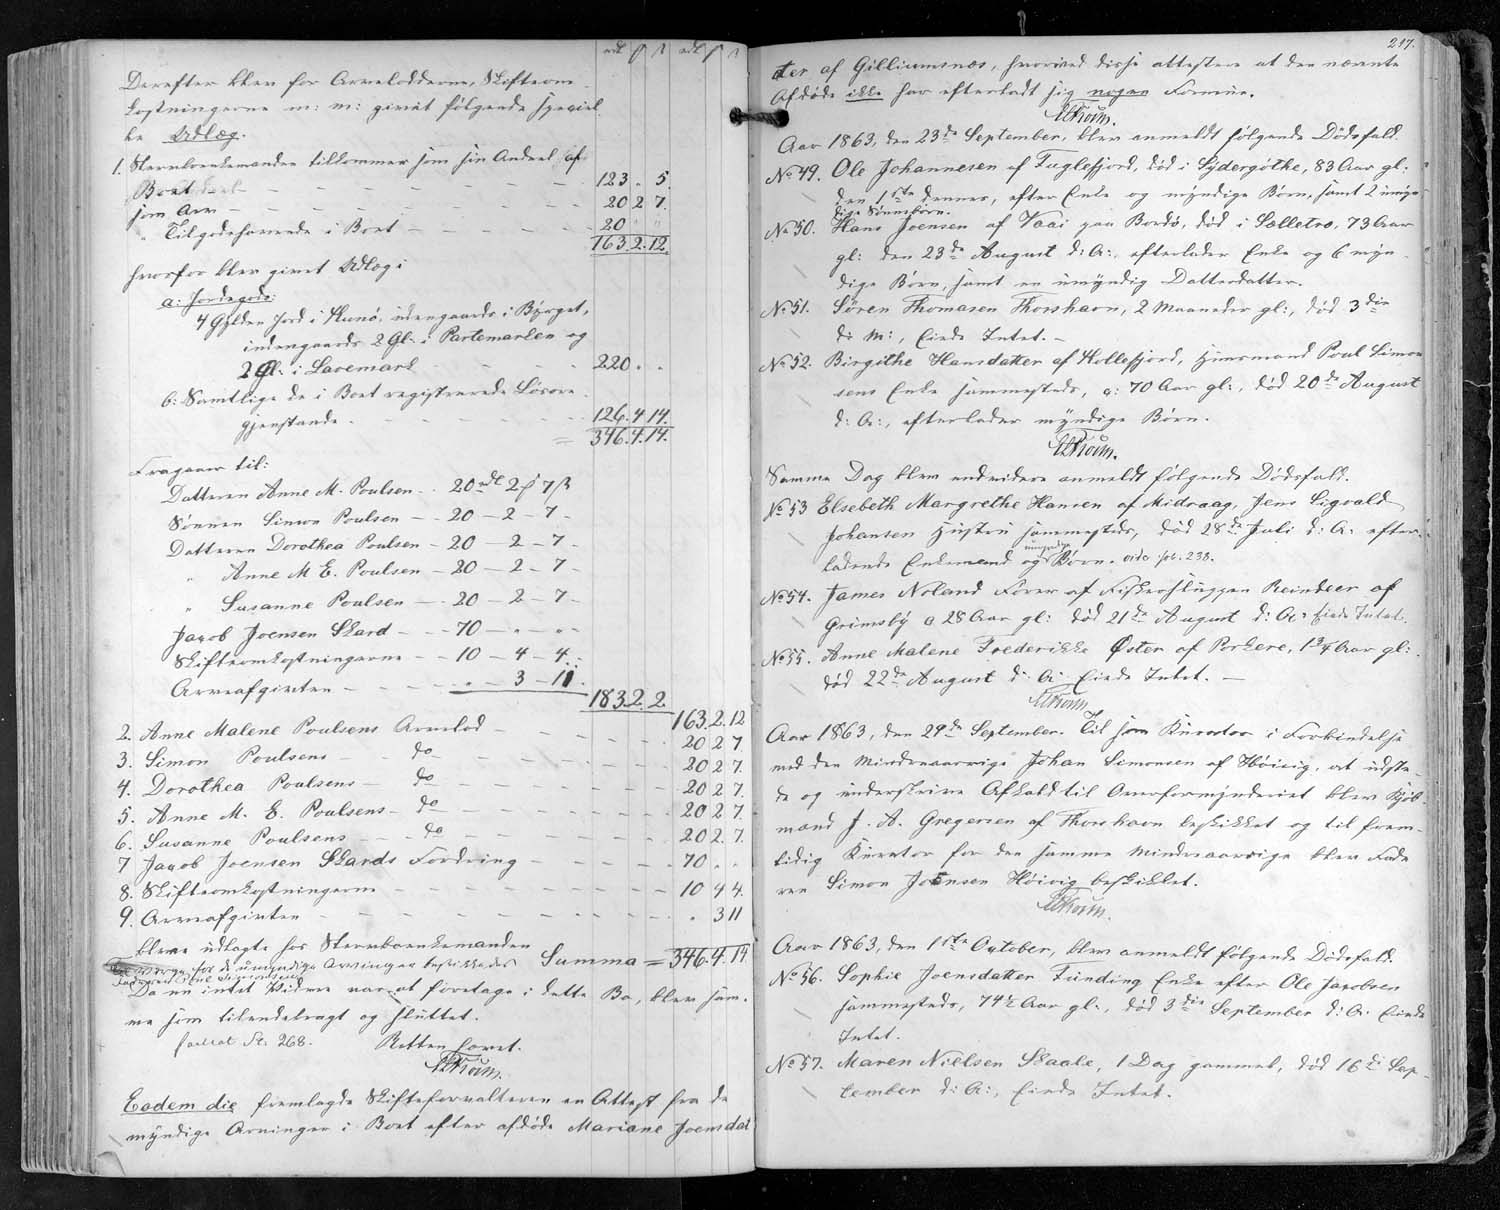 rdl ꝑ ß rdl ꝑ ß
Derefter blev for Arvelodderne, Skifteom-
kostningerne m: m: givet følgende speciel-
le Udlæg.
1. Stervboenkemanden tilkommer som sin Andeel af
Boet — — — — — — 123 „ 5.
som Arv — — — — — — 20 2 7.
„ Tilgodehavende i Boet — — — — 20 „ „
163. 2. 12.
hvorfor blev givet Udlæg i
a: Jordegods:
4 Gylden Jord i Kunø, udengaards i Bÿrget,
indengaards 2 Gl. i Partemarken og
2 Gl. i Lavemark — — — — 220 „ „
b: Samtlige de i Boet registrerede Løsøre-
gjenstande — — — — 126. 4. 14.
= 346. 4. 14.
Fragaaer til:
Datteren Anne M. Poulsen — 20 rdl 2 ꝑ 7 ß
Sønnen Simon Poulsen — 20 — 2 — 7 —
Datteren Dorothea Poulsen — 20 — 2 — 7 —
„ Anne M E. Poulsen — 20 — 2 — 7 —
„ Susanne Poulsen — 20 — 2 — 7 —
Jacob Joensen Skard — 70 — „ — „
Skifteomkostningerne — 10 — 4 — 4.
Arveafgivten — — — „ — 3 — 11.
183. 2. 2.
163. 2. 12
2. Anne Malene Poulsens Arvelod — — — 20 2 7
3. Simon Poulsens — do — — — 20 2 7.
4. Dorothea Poulsens — do — — — 20 2 7.
5. Anne M. E. Poulsens — do — — — 20 2 7.
6. Susanne Poulsens — do — — — 20 2. 7.
7 Jacob Joensen Skards Fordring — — — 70 „ „
8. Skifteomkostningerne — — — 10 4 4.
9. Arveafgivten — — — „ 3 11
bleve udlagte hos Stervboenkemanden Summa = 346. 4. 14
Værge for de umyndige Arvinger beskikkedes
Da nu intet Videre var at foretage i dette Bo, blev sam-
me som tilendebragt og sluttet.
St. 268. Retten hævet.
Eodem die fremlagde Skifteforvalteren en Attest fra de
myndige Arvinger i Boet efter afdøde Mariane Joensdat-
217.
ter af Gilliumsnæs, hvorved disse attestere at den nævnte
Afdøde ikke har efterladt sig nogen Formue.
Aar 1863, den 23de September, blev anmeldt følgende Dødsfald.
No 49. Ole Johannesen af Fuglefjord, død i Sydergøthe, 83 Aar gl:
den 1ste dennes, efter Enke og myndige Børn, samt 2 umyn-
dige Sønnebørn.
No 50. Hans Joensen af Vaai paa Bordø, død i Sælletræ, 73 Aar
gl: den 23de August d: A: efterlader Enke og 6 myn-
dige Børn, samt en umyndig Datterdatter.
No 51. Søren Thomasen Thorshavn, 2 Maaneder gl:, død 3die
ds M:, Eiede Intet. —
No 52. Birgithe Hansdatter af Kollefjord, Huusmand Poul Simon-
sens Enke sammesteds, a: 70 Aar gl:, død 20de August
d: A:, efterlader myndige Børn.
Samme Dag blev endvidere anmeldt følgende Dødsfald.
No 53 Elsebeth Margrethe Hansen af Midvaag, Jens Sigvald
Johansen Hustru sammesteds, død 28de Juli d: A: efter-
ladende Enkemand og umyndige Børn. vide pt. 238.
No 54. James Noland Fører af Fiskersluppen Reindeer af
Grimsby a 28 Aar gl: død 21de August d: A: Eiede Intet.
No 55. Anne Malene Frederikke Øster af Porkere, 1¾ Aar gl:
død 22de August d: A: Eiede Intet. —
Aar 1863, den 29de September. Til som Kurator i Forbindelse
med den Mindreaarige Johan Simonsen af Høivig, at udste-
de og underskrive Afkald til Overformynderiet blev Kjøb-
mand J. A. Gregersen af Thorshavn beskikket og til frem-
tidig Kurator for den samme Mindreaarige blev Fade-
ren Simon Joensen Høivig beskikket.
Aar 1863, den 1ste October, blev anmeldt følgende Dødsfald.
No 56. Sophie Joensdatter Funding Enke efter Ole Jacobsen
sammesteds, 74½ Aar gl:, død 3die September d: A: Eiede
Intet.
No 57. Maren Nielsen Skaale, 1 Dag gammel, død 16de Sep-
tember d: A:, Eiede Intet.